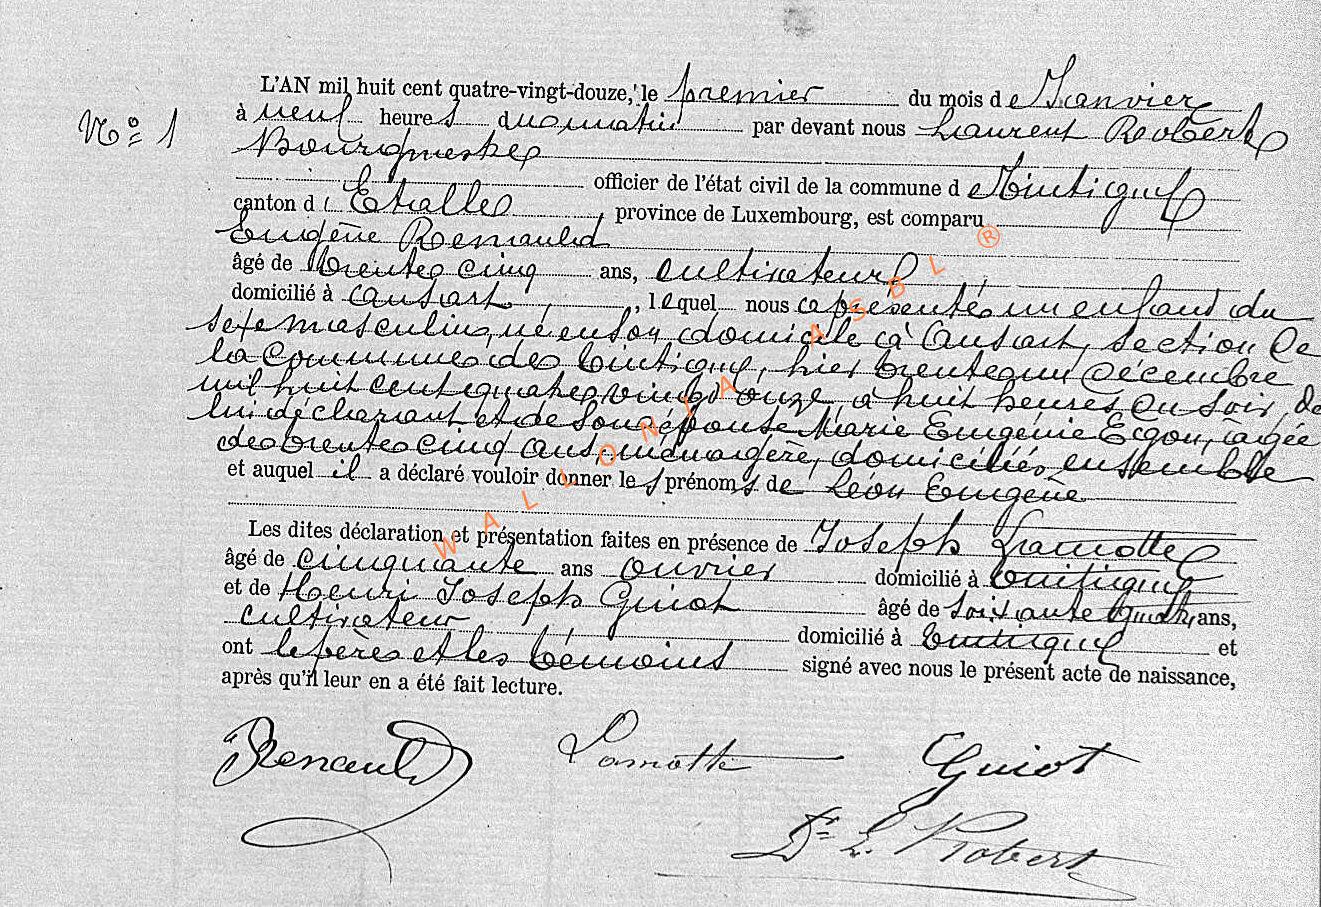 L'AN mil huit cent quatre-vingt-douze, le premier du mois de Janvier
N° 1
à neuf heures du matin par devant nous Laurent Robert
Bourgmestre
officier de l'état civil de la commune de Tintigny
canton d'Etalle, province de Luxembourg, est comparu
Eugène Renauld
âgé de trente cinq ans, cultivateur
domicilié à Ansart, lequel nous a présenté un enfant du
sexe masculin, né en son domicile à Ansart, section de
la commune de Tintigny, hier trente un Décembre
mil huit cent quatre vingt onze, à huit heures du soir, de
lui déclarant et de son épouse Marie Eugénie Egon, âgée
de trente cinq ans, ménagère, domiciliés ensemble
et auquel il a déclaré vouloir donner les prénoms de Léon Eugène
Les dites déclaration et présentation faites en présence de Joseph Lamotte
âgé de cinquante ans ouvrier domicilié à Tintigny
et de Henri Joseph Guiot âgé de soixante quatre ans,
cultivateur domicilié à Tintigny et
ont le père et les témoins signé avec nous le présent acte de naissance,
après qu'il leur en a été fait lecture.
Renauld Lamotte Guiot
Dr L. Robert
WALLONIA ASBL ®